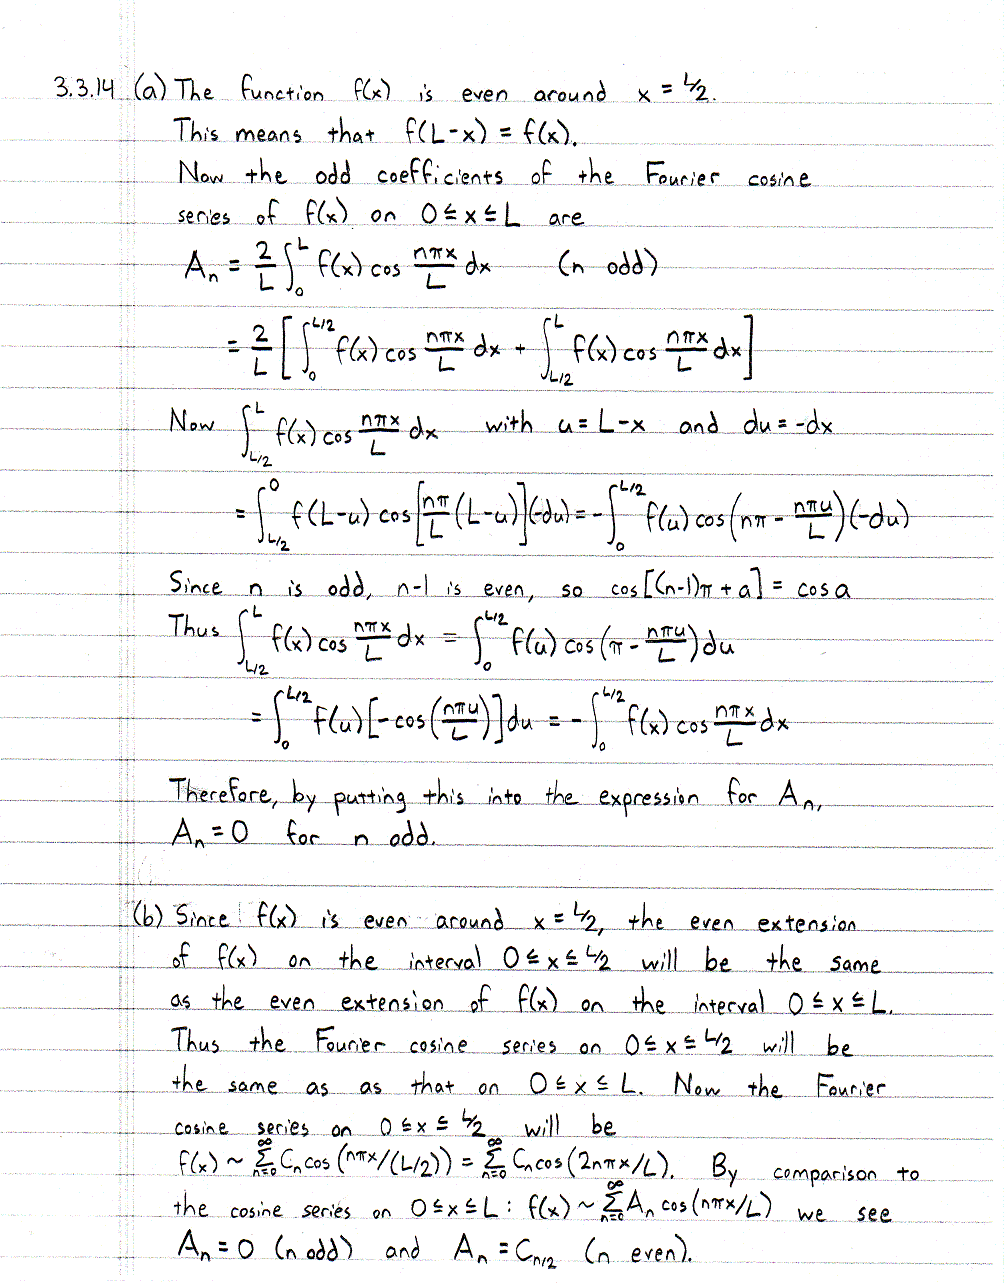 3.3.14 (a) The function f(x) is even around x = L/2.
This means that f(L-x) = f(x).
Now the odd coefficients of the Fourier cosine
series of f(x) on 0 ≤ x ≤ L are
Aₙ = 2/L ∫₀^L f(x) cos nπx/L dx (n odd)
= 2/L [∫₀^{L/2} f(x) cos nπx/L dx + ∫_{L/2}^L f(x) cos nπx/L dx]
Now ∫_{L/2}^L f(x) cos nπx/L dx with u = L-x and du = -dx
= ∫_{L/2}^0 f(L-u) cos[nπ/L (L-u)](-du) = -∫₀^{L/2} f(u) cos(nπ - nπu/L)(-du)
Since n is odd, n-1 is even, so cos[(n-1)π + a] = cos a
Thus ∫_{L/2}^L f(x) cos nπx/L dx = ∫₀^{L/2} f(u) cos(π - nπu/L) du
= ∫₀^{L/2} f(u)[-cos(nπu/L)] du = -∫₀^{L/2} f(x) cos nπx/L dx
Therefore, by putting this into the expression for Aₙ,
Aₙ = 0 for n odd.
(b) Since f(x) is even around x = L/2, the even extension
of f(x) on the interval 0 ≤ x ≤ L/2 will be the same
as the even extension of f(x) on the interval 0 ≤ x ≤ L.
Thus the Fourier cosine series on 0 ≤ x ≤ L/2 will be
the same as as that on 0 ≤ x ≤ L. Now the Fourier
cosine series on 0 ≤ x ≤ L/2 will be
f(x) ~ Σ_{n=0}^∞ Cₙ cos(nπx/(L/2)) = Σ_{n=0}^∞ Cₙ cos(2nπx/L). By comparison to
the cosine series on 0 ≤ x ≤ L: f(x) ~ Σ_{n=0}^∞ Aₙ cos(nπx/L) we see
Aₙ = 0 (n odd) and Aₙ = C_{n/2} (n even).